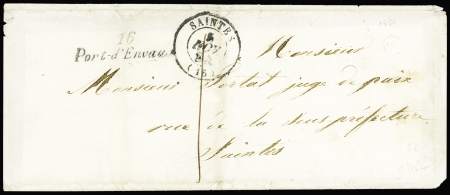 16
Port-d'Envaux
SAINTES
5
NOV
(16)
Monsieur
Monsieur juge de paix
rue de la sous préfecture
Saintes